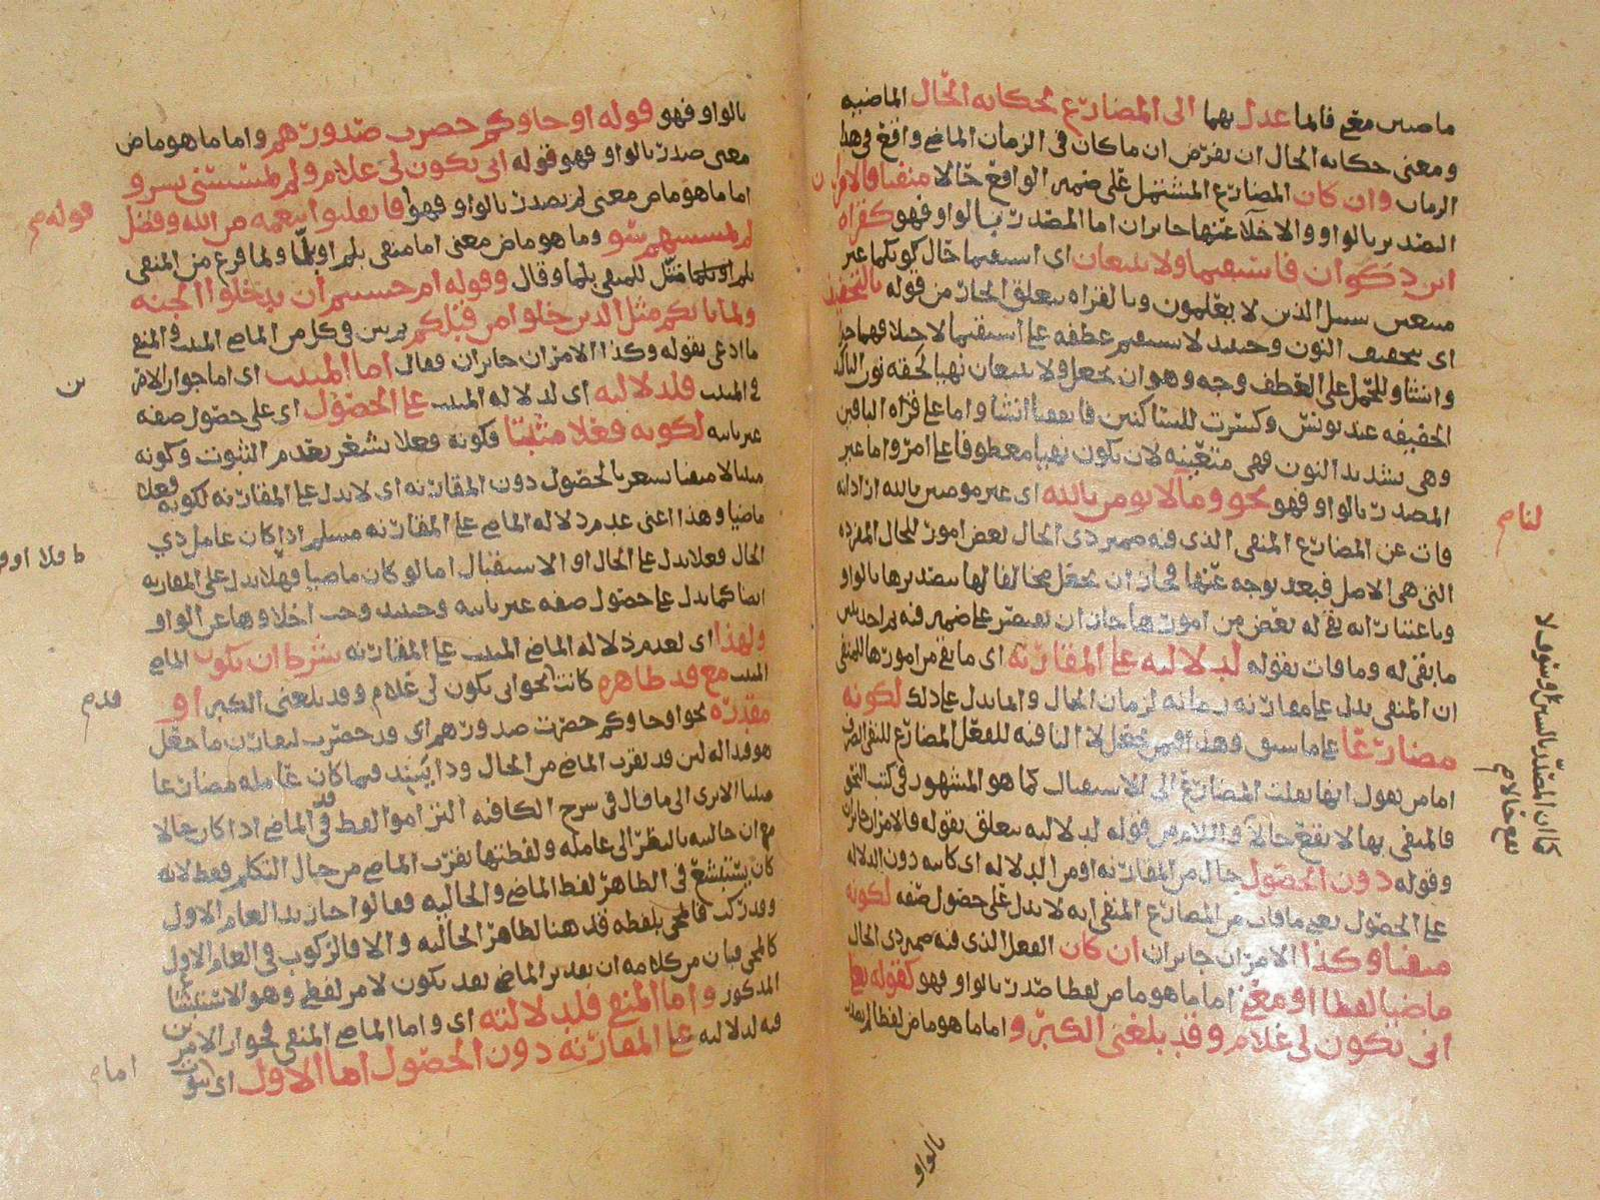 ماضيين معنى فانما عدل بهما الى المضارع لحكاية الحال الماضيه
ومعنى حكاية الحال ان يفرض ان ما كان في الزمان الماضي واقع في هذا
الزمان وان كان المضارع المشتمل على ضمير الواقع حالا منفيا فالامران
التصدير بالواو والاخلا عنها جايزان اما المصدر بالواو فهو كقراة
ابن ذكوان فاستقيما ولا تتبعان اى استقيما حال كونكما غير
متبعين سبيل الذين لا يعلمون وبالقراة يتعلق الجار من قوله بالتخفيف
اى بتخفيف النون وحينئذ لا يستقيم عطفه على استقيما لاختلافهما خبرا
وانشا وللحمل على العطف وجه وهو ان يجعل ولا تتبعان نهيا لحقه نون التاكيد
الخفيفه عند يونس وكسرت للساكنين فاتفقا انشا واما على قراة الباقين
وهى بتشديد النون فهى متعينه لان يكون نهيا معطوفا على امر واما غير
المصدر بالواو فهو نحو وما لنا لا نومن بالله اى غير مومنين بالله اذ اذا
فات عن المضارع المنفى الذى فيه ضمير ذى الحال بعض امور للحال المفرده
التى هى الاصل فبعد بوجه عنها فجاز ان يجعل مخالفا لها بتصديرها بالواو
وباعتبار انه بقى له بعض من امورها جاز ان يقتصر على ضمير فيه
ما بقى له وما فات بقوله لدلالته على المقارنة اى ما بقى من امورها للمنفى
ان المنفى يدل على مقارنه زمانه لزمان الحال وانما يدل على ذلك لكونه
مضارعا على ما سبق وهذا فيمن يجعل لا النافيه للفعل المضارع للنفى الصرف
اما من يقول انها نقلت المضارع الى الاستقبال كما هو المشهور في كتب النحو
فالمنفى بها لا يقع حالا واللام من قوله لدلالته يتعلق بقوله فالامران جايزان
وقوله دون الحصول حال من المقارنه او من الدلاله اى كاينه دون الدلاله
على الحصول يعنى ما فات من المضارع المنفى انه لا يدل على حصول صفه لكونه
منفيا وكذا الامران جايزان ان كان الفعل الذى فيه ضمير ذى الحال
ماضيا لفظا او معنى اما ما هو ماض لفظا صدر بالواو فهو كقوله تعالى
انى يكون لى غلام وقد بلغنى الكبر واما ما هو ماض لفظا
بالواو
لنا م
كما ان المصدر بالسين او سوف لا
يقع حالا م
بالواو فهو قوله او جاوكم حصرت صدورهم واما ما هو ماض
معنى صدر بالواو فهو قوله انى يكون لى غلام ولم يمسسنى بشر و
اما ما هو ماض معنى لم يصدر بالواو فهو فانقلبوا بنعمه من الله وفضل
لم يمسسهم سو وما هو ماض معنى اما منفى بلم او بلما ولما فرغ من المنفى
بلم او بلما مثل للمنفى بلما وقال وقوله ام حسبتم ان تدخلوا الجنه
ولما ياتكم مثل الذين خلوا من قبلكم يريد في كل من الماضى المثبت والمنفى
ما ادعى بقوله وكذا الامران جايزان فقال اما المثبت اى اما جواز الامر
في المثبت فلدلالته اى لدلالة المثبت على الحصول اى على حصول صفه
غير ثابته لكونه فعلا مثبتا فكونه فعلا يشعر بعدم الثبوت وكونه
مثبتا لا منفيا يشعر بالحصول دون المقارنه اى لا يدل على المقارنه لكونه فعلا
ماضيا وهذا اعنى عدم دلاله الماضى على المقارنه مسلم اذا كان عامل ذى
الحال فعلا يدل على الحال او الاستقبال اما لو كان ماضيا فهلا يدل على المقارنه
ايضا كما يدل على حصول صفه غير ثابته وحينئذ وجب اخلاوها عن الواو
ولهذا اى لعدم دلاله الماضى المثبت على المقارنه شرط ان يكون الماضى
المثبت مع قد ظاهره كانت نحو انى يكون لى غلام وقد بلغنى الكبر او
مقدره نحو او جاوكم حصرت صدورهم اى قد حصرت
هو قد اله لان قد تقرب الماضى من الحال
مثبتا الا ترى الى ما قال في شرح الكافيه التزاموا لفظ قد في الماضى اذا كان حالا
مع ان حاليته بالنظر الى عامله ولفظتها تقرب الماضى من حال التكلم فقط لانه
كان يستبشع في الظاهر لفظ الماضى والحاليه فقالوا جا زيد العام الاول
وقد ركب فالمجى بلفظه قد هنا لظاهر الحاليه والا فالركوب في العام الاول
كالمجى فبان من كلامه ان تقدير الماضى بعد يكون لامر لفظى وهو الاستبشاع
المذكور واما المنفى فلدلالته اى واما الماضى المنفى فجواز الامرين
فيه لدلالته على المقارنه دون الحصول اما الاول اى
قوله م
ين
قد م
اما م